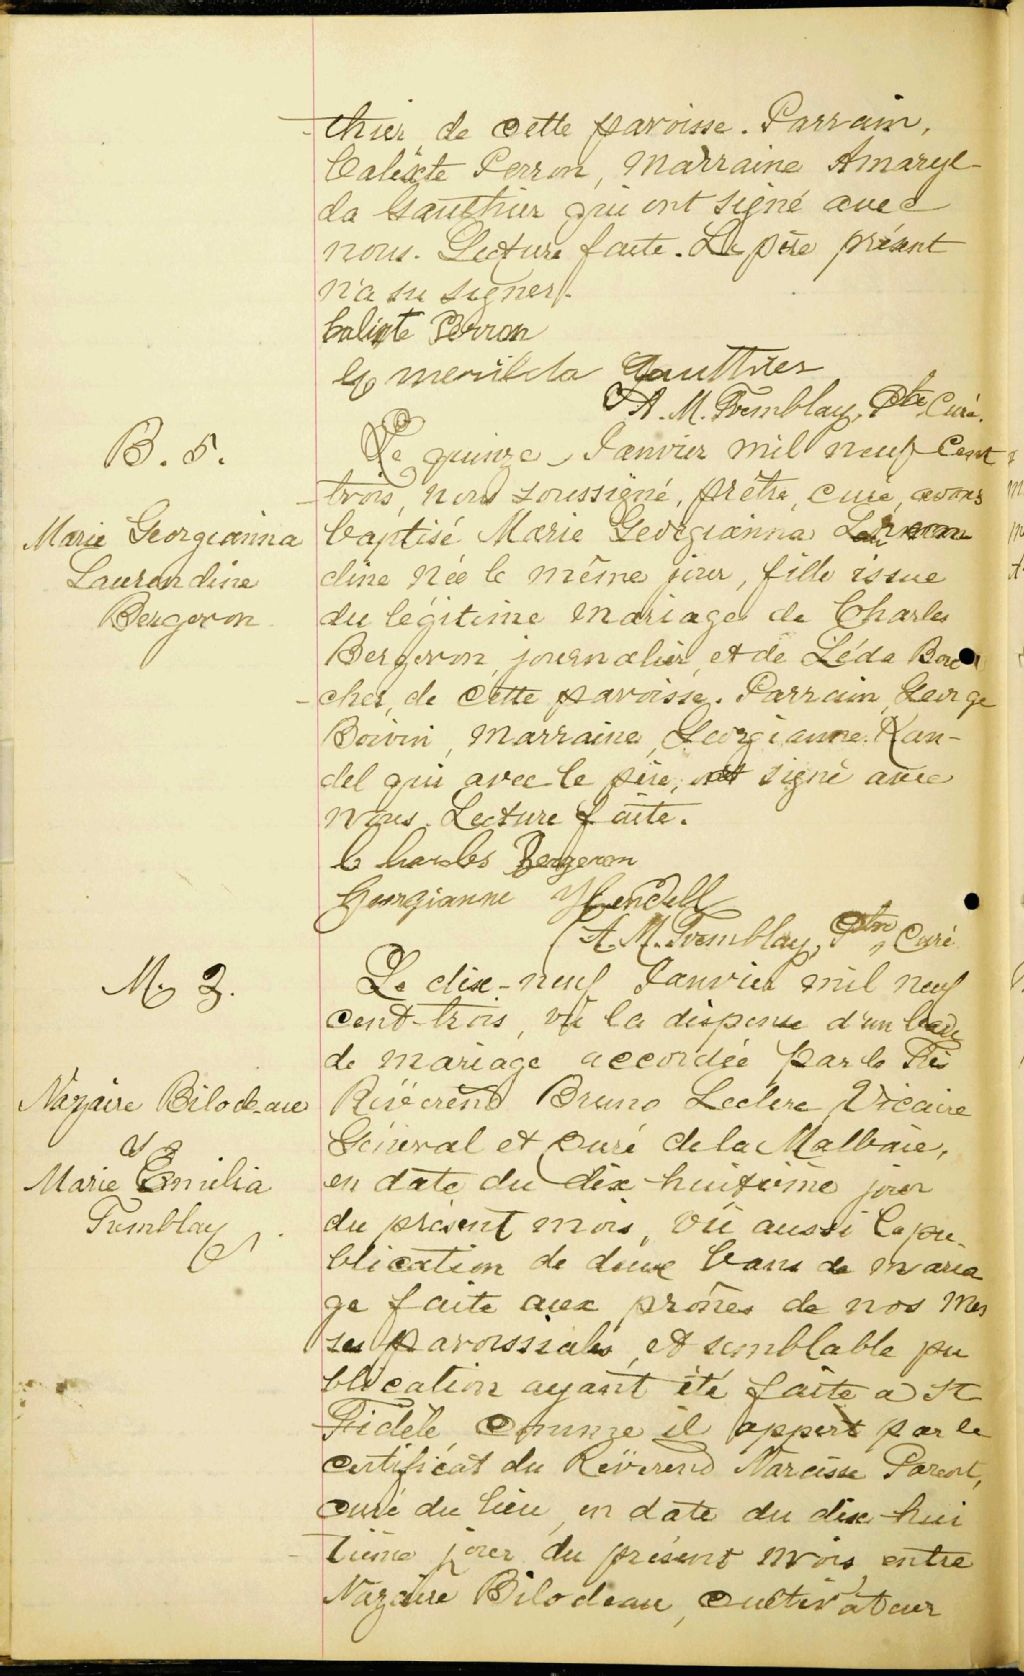 thier de cette paroisse. Parrain,
Calixte Perron, Marraine Amaryl-
da Gauthier qui ont signé avec
nous. Lecture faite. Le père présent
n'a su signer.
Calixte Perron
Gauthier
A. M. Tremblay, Ptre Curé.
B. 5.
Marie Georgianna
Laurendine
Bergeron
Le quinze Janvier mil neuf cent
trois, nous soussigné, prêtre, curé, avons
baptisé Marie Georgianna
dine née le même jour, fille issue
du légitime mariage de Charles
Bergeron, journalier, et de Léda Bou
cher, de cette paroisse. Parrain, George
Boivin, Marraine, Georgianne Kan-
del qui avec le père, ont signé avec
nous. Lecture faite.
Charles Bergeron
Georgianne
A. M. Tremblay, Ptre, Curé
M. 3.
Nazaire Bilodeau
&
Marie Emilia
Tremblay
Le dix-neuf Janvier mil neuf
cent-trois, vû la dispense d'un ban
de mariage accordée par le Très
Révérend Bruno Leclerc, Vicaire
Général et Curé de la Malbaie,
en date du dix-huitième jour
du présent mois, vû aussi la pu-
blication de deux bans de maria
ge faite aux prônes de nos Mes
ses paroissiales, et semblable pu
blication ayant été faite a St
Fidèle comme il appert par le
certificat du Révérend Narcisse Parent,
curé du lieu, en date du dix-hui
tième jour du présent mois, entre
Nazaire Bilodeau, cultivateur